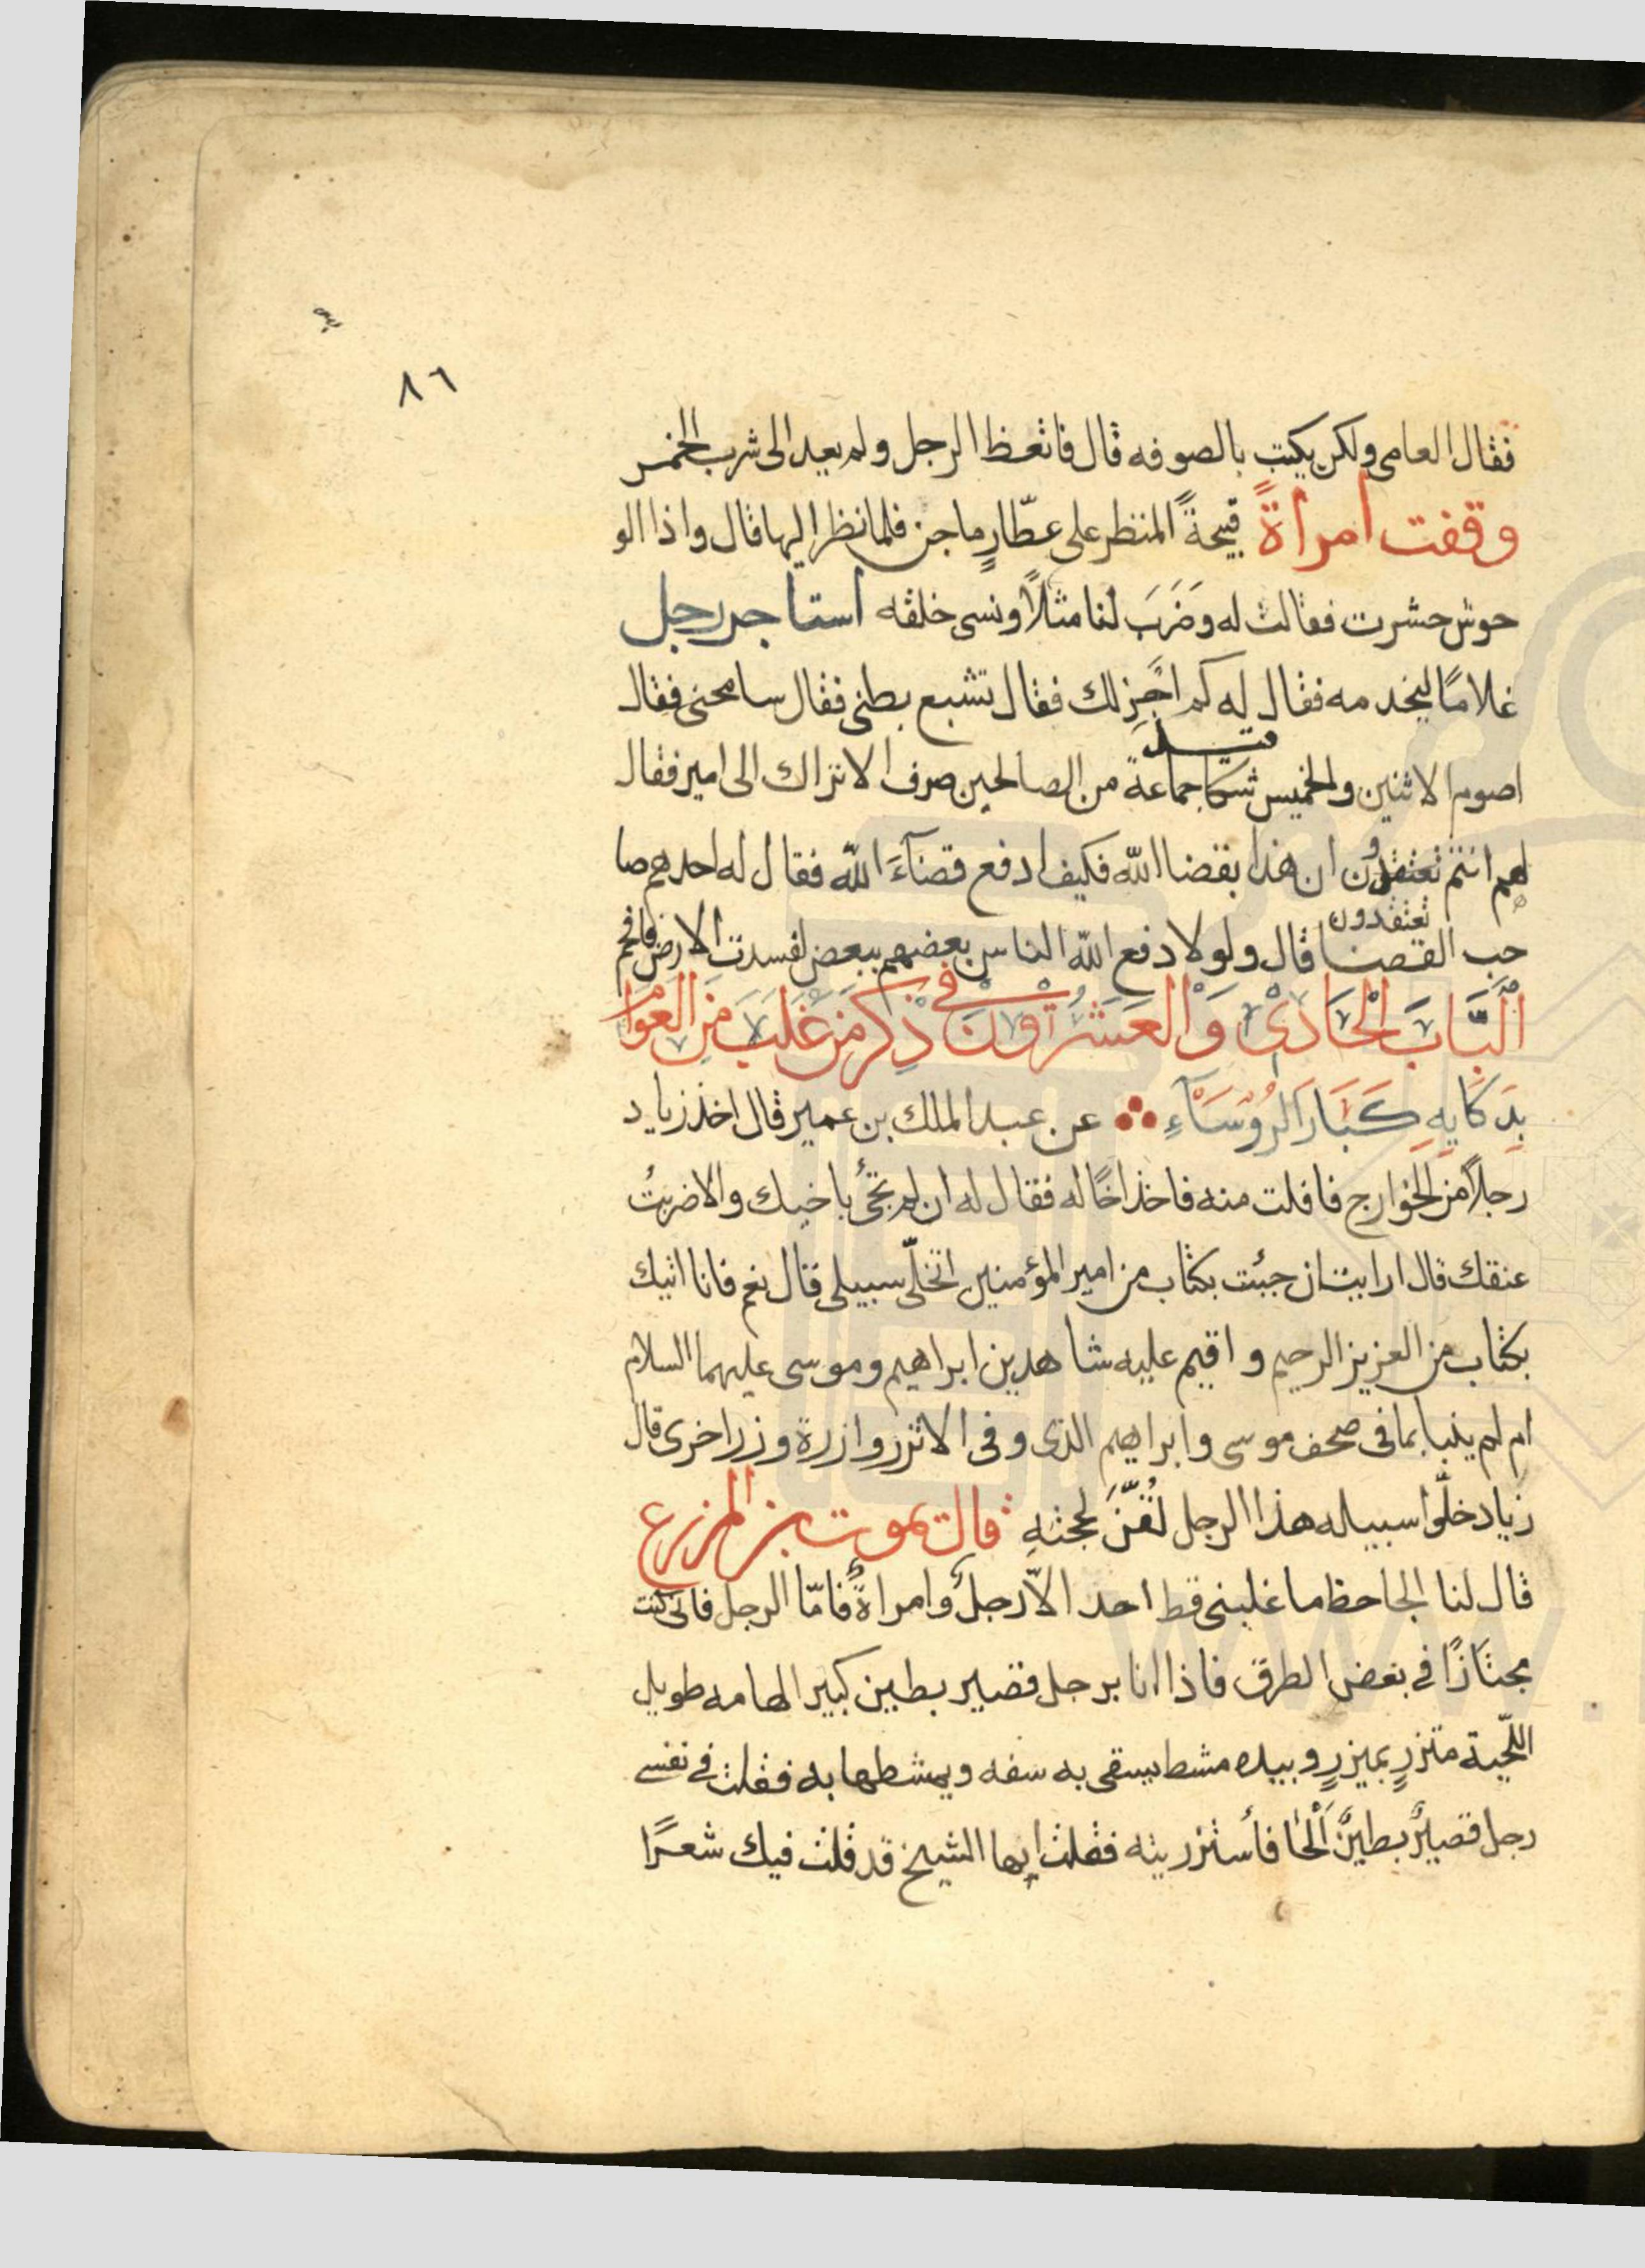 ٨٦
فقال العامى ولكن يكتب بالصوفه قال فاتعظ الرجل ولم يعد الى شرب الخمر
وقفت امراةً قبيحةً المنظر على عطّارٍ ماجن فلما نظر اليها قال واذا الو
حوش حشرت فقالت له وضَرَبَ لنا مثلاً ونسى خلقه استاجر رجل
غلامًا ليخدمه فقال له كم اجرلك فقال تشبع بطنى فقال سامحنى فقال
اصوم الاثنين والخميس شكا جماعة من الصالحين صرف الاتراك الى امير فقال
لهم انتم تعتقدون ان هذا بقضا الله فكيف ادفع قضآءَ الله فقال له احدهم صا
تعتقدون
حب القضا قال ولولا دفع الله الناس بعضهم ببعض لفسدت الارض فافحم
اَلْبَابَ الْحَادِىْ وَالْعَشْرُونَ فى ذِكرِ مَن غَلَبَ مِنَ العَوَامِ
بِذكَايِهِ كَبَارَ الرُوسَآءِ عن عبد الملك بن عمير قال اخذ زياد
رجلاً من الخوارج فافلت منه فاخذ اخًا له فقال له ان لم تجئ باخيك والا ضربتُ
عنقك قال ارايت ان جئت بكتاب من امير المؤمنين اتخلّى سبيلى قال نعم فانا اتيك
بكتاب من العزيز الرحيم واقيم عليه شاهدين ابراهيم وموسى عليهما السلام
ام لم ينبا بما فى صحف موسى وابراهيم الذى وفى الا تزر وازرة وزر اخرى قال
زياد خلّوا سبيله هذا الرجل لُقّنَ لحجتهِ قال يموت بن المزرع
قال لنا الجاحظ ما غلبنى قط احد الاّ رجلٌ وامراةٌ فامّا الرجل فانى كنت
مجتازًا فى بعض الطرق فاذا انا برجل قصير بطين كبير الهامه طويل
اللّحية متزرٍ بميزرٍ وبيده مشط يسقى به سفه ويمشطها به فقلت فى نفسى
رجل قصيرٌ بطينٌ اَلْحَا فأستزريته فقلت ايها الشيخ قد قلت فيك شعرًا